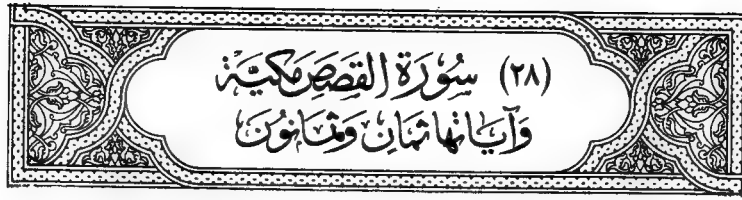 (٢٨) سُورَةُ القَصَصِ مَكيَّة
وَآيَاتُهَا ثَمَانِ وَثَمَانُونَ